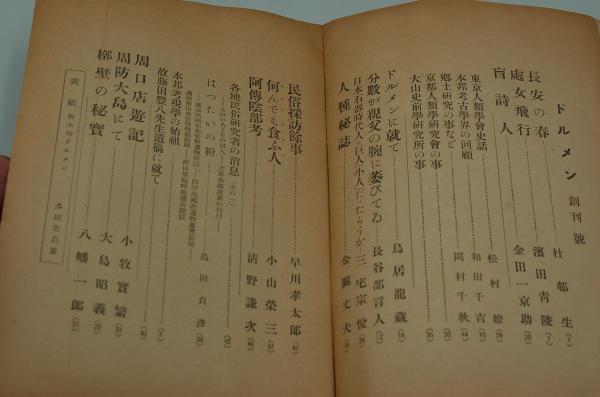 ドルメン 創刊號
長安の春 杜邨生
處女飛行 濱田青陵
盲詩人 金田一京助
東京人類學會史話 松村瞭
本邦考古學界の回顧 和田千吉
郷土研究の事など 岡村千秋
京都人類學研究會の事
大山史前學研究所の事
ドルメンに就て 鳥居龍藏
分數が親父の腕に萎びてゐ 長谷部言人
日本石器時代人は巨人(小人)だつたらうか 三宅宗悦
人種秘誌 金關丈夫
民俗採訪餘事 早川孝太郎
何んでも食ふ人 小山榮三
阿傳陰部考 清野謙次
各地民俗研究者の消息(その一)
はつたいの粉 島田貞彦
本邦考現學の始祖
故藤田豊八先生遺稿に就て
周口店遊記 小牧實繁
周防大島にて 大島昭義
槨壁の秘寳 八幡一郎
表紙 ドルメン 多田北烏案